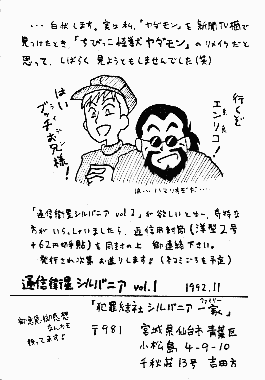 … 白状します。実は私、「ヤダモン」を新聞TV欄で
見つけたとき「ちびっこ怪獣ヤダモン」のリメイクだと
思って、しばらく見ようともしませんでした(笑)
行くぞ
エンリコ!
はい
ブッチお兄様!
「通信衛星シルバニア vol.2」が欲しいとゆー、奇特な
方がいらっしゃいましたら、返信用封筒(洋型2号
+62円切手貼)を同封の上 御連絡下さい。
発行され次第お送りします♪(冬コミごろを予定)
通信衛星シルバニア vol.1 1992.11
「犯罪結社シルバニア一家」
ファミリー
御意見・御感想
なんかも
待ってます♪
〒981 宮城県仙台市青葉区
小松島 4-9-10
千秋荘13号 吉田方